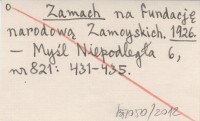 0
Zamach na Fundację
narodową Zamoyskich. 1926.
— Myśl Niepodległa 6,
nr 821: 431-435.